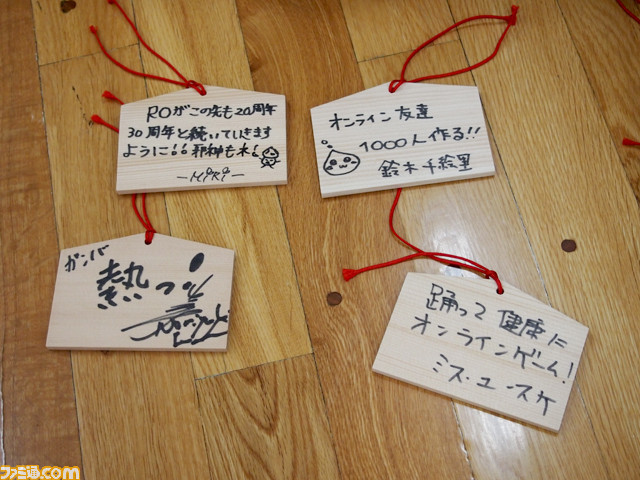 ROがこの先も20周年
30周年と続いていきます
ように!!邪神も木!
-MiRi-
オンライン友達
1000人作る!!
鈴木千絵里
ガンバ
熱いっ!
踊って健康に
オンラインゲーム!
ミス・ユースケ
ファミ通.com